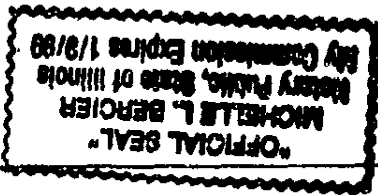 "OFFICIAL SEAL"
MICHELLE L. BERGIER
Notary Public, State of Illinois
My Commission Expires 1/9/99